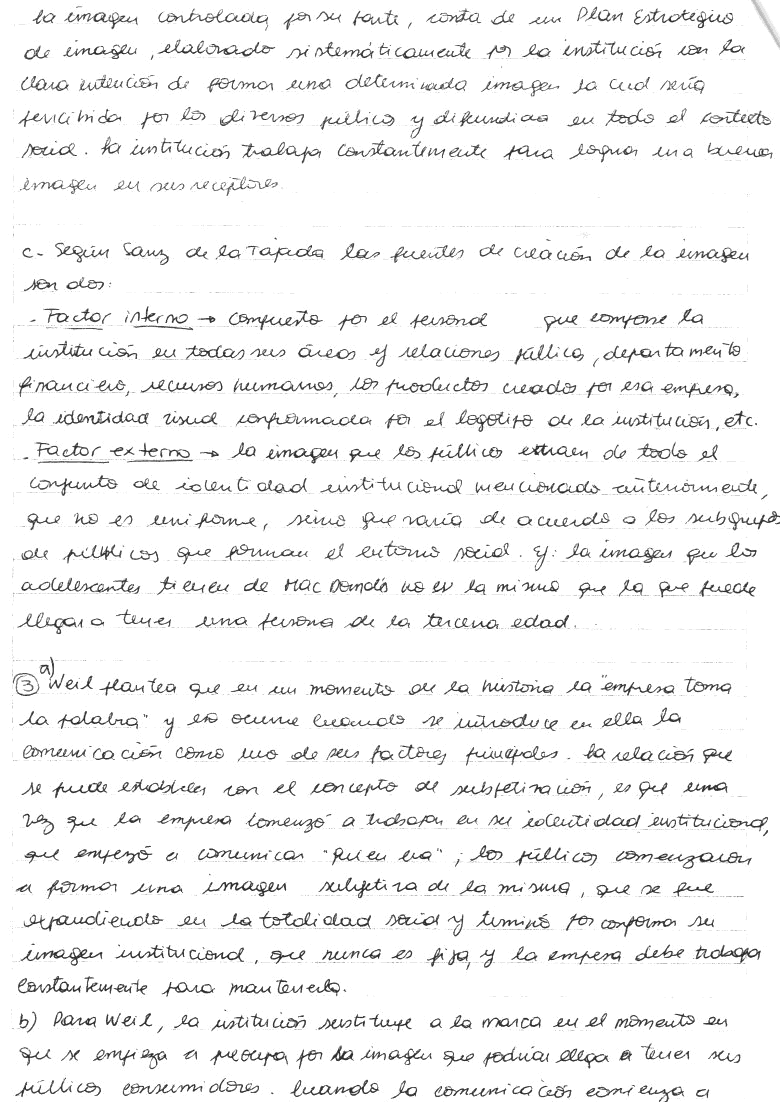 la imagen controlada, por su parte, consta de un Plan Estratégico
de imagen, elaborado sistemáticamente por la institución con la
clara intención de formar una determinada imagen la cual sería
percibida por los diversos públicos y difundida en todo el contexto
social. La institución trabaja constantemente para lograr una buena
imagen en sus receptores.
c- Según Sanz de la Tajada las fuentes de creación de la imagen
son dos:
- Factor interno → compuesto por el personal que compone la
institución en todas sus áreas ej relaciones públicas, departamento
financiero, recursos humanos, los productos creados por esa empresa,
la identidad visual conformada por el logotipo de la institución, etc.
- Factor externo → la imagen que los públicos extraen de todo el
conjunto de identidad institucional mencionado anteriormente,
que no es uniforme, sino que varía de acuerdo a los subgrupos
de públicos que forman el entorno social. Ej: la imagen que los
adolescentes tienen de Mac Donald's no es la misma que la que puede
llegar a tener una persona de la tercera edad.
③ a) Weil plantea que en un momento de la historia la "empresa toma
la palabra" y eso ocurre cuando se introduce en ella la
comunicación como uno de sus factores principales. La relación que
se puede establecer con el concepto de subjetivación, es que una
vez que la empresa comenzó a trabajar en su identidad institucional,
que empezó a comunicar "quien era"; los públicos comenzaron
a formar una imagen subjetiva de la misma, que se fue
expandiendo en la totalidad social y terminó por conformar su
imagen institucional, que nunca es fija, y la empresa debe trabajar
constantemente para mantenerla.
b) Para Weil, la institución sustituye a la marca en el momento en
que se empieza a preocupar por la imagen que podrían llegar a tener sus
públicos consumidores. Cuando la comunicación comienza a